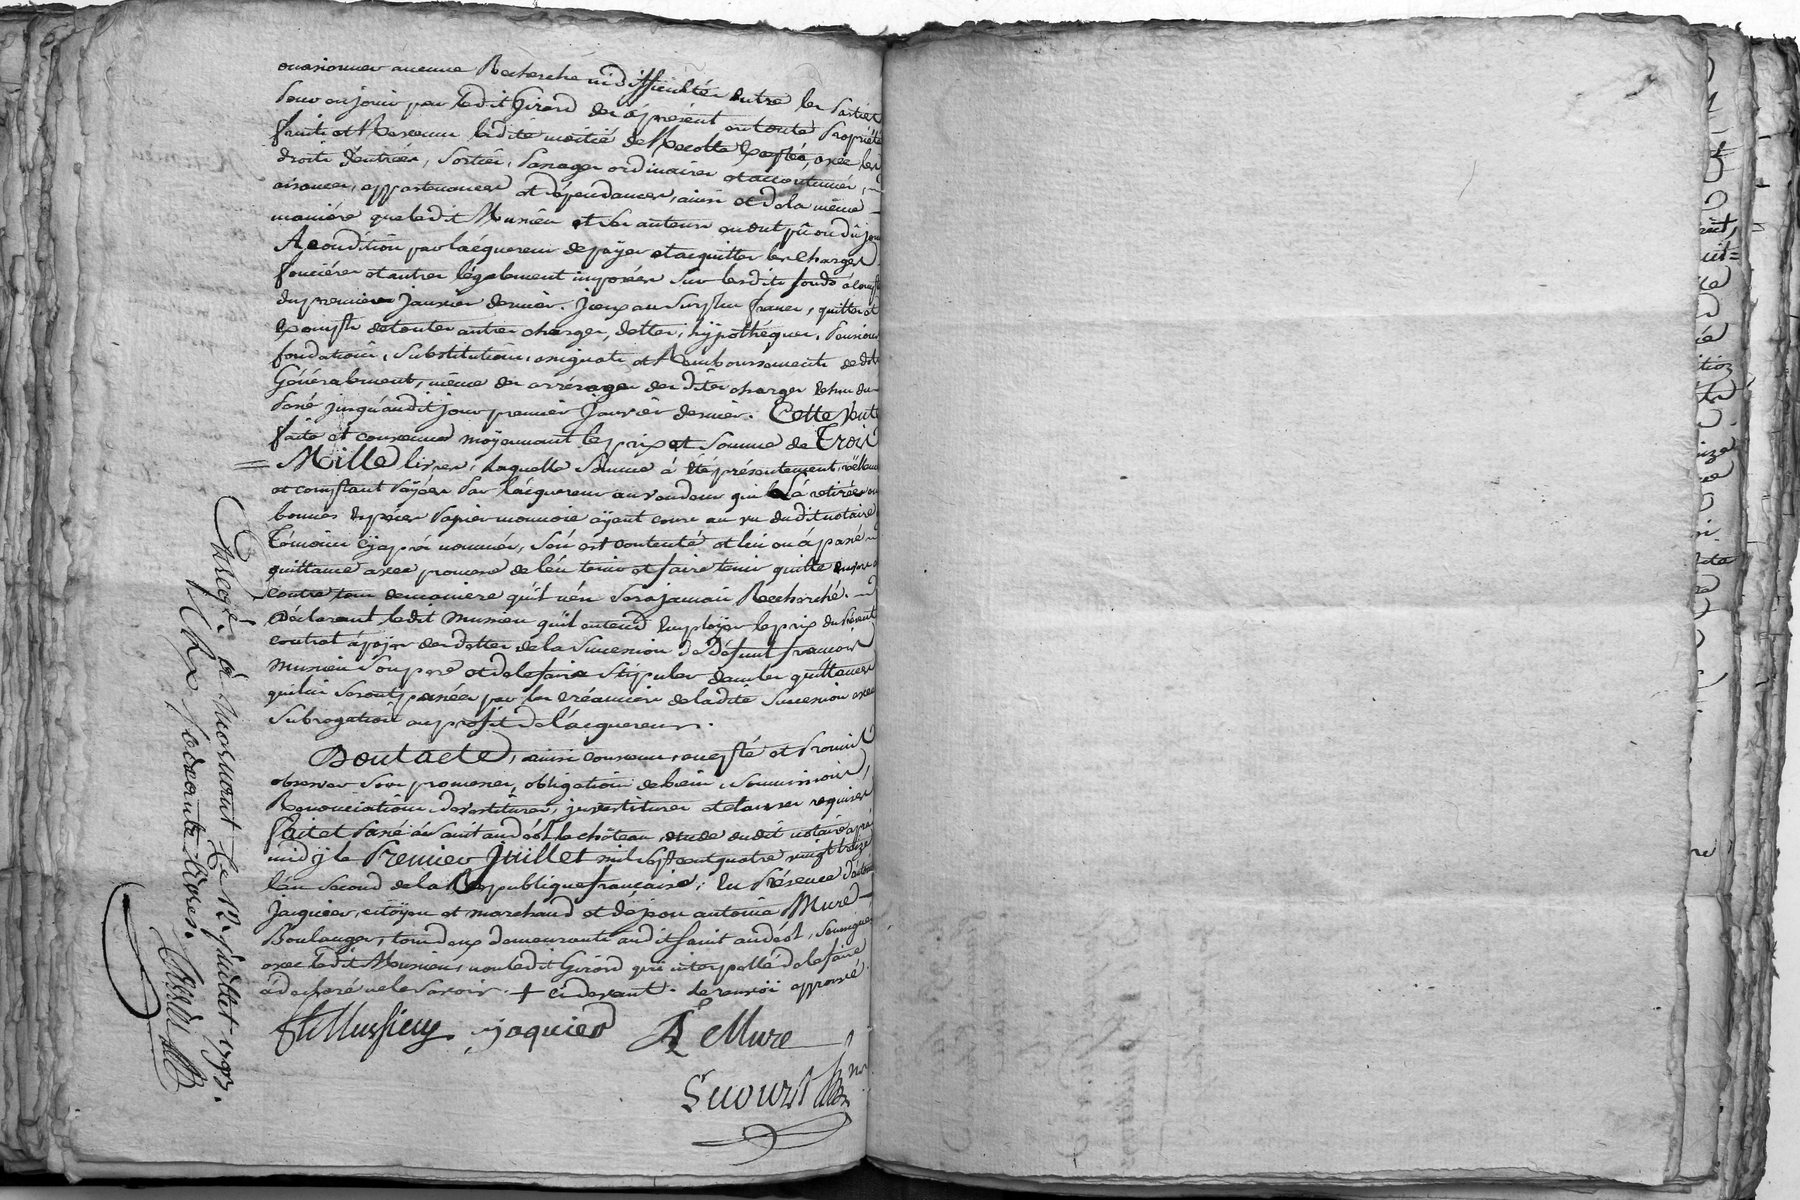 occasionner aucune Recherche ni difficultés entre les Parties
Pour en jouir par ledit Girard des à présent en toute Propriété
fruits et Revenus ladite moitié de Récolte Exceptée, avec les
droits d'entrées, sorties, passages ordinaires et accoutumés,
aisances, appartenances et dépendances, ainsi et de la même
manière que ledit Mussieu et ses auteurs en ont pû ou dû jouir
A condition par l'acquereur de payer et acquitter les charges
foncières et autres légalement imposées sur lesdits fonds à compter
du premier Janvier dernier. Iceux au surplus francs, quittes et
Exempts de toutes autres charges, dettes, hypothéques, Pensions
fondations, Substitutions, assignats et Remboursements de dots
Généralement, même des arrérages desdites charges échus du
Passé jusqu'audit jour premier Janvier dernier. Cette Vente
faite et convenue moyennant le prix et somme de Trois
= Mille livres, laquelle somme à été présentement réellement
et comptant payée par l'acquereur au vendeur qui l'a retirée en
bonnes Espéces Papier monnoie ayant cours au vu dudit notaire
Témoins cy après nommés, s'en est contenté et lui en à passé
quittance avec promesse de l'en tenir et faire tenir quitte envers et
contre tous de maniere qu'il n'en sera jamais Recherché.
Déclarant ledit Mussieu qu'il entend Employer le prix du Présent
contrat à payer des dettes de la Succession de Défunt françois
Mussieu son pere et de le faire stipuler dans les quittances
qui lui seront passées par les créanciers de ladite Succession avec
Subrogation au profit de l'acquereur.
Dont acte, ainsi convenu, accepté et Promis
observer sous promesses, obligation de biens, soumissions,
Renonciations, devestitures, investitures et clauses requises
fait et Passé à Saint andéol le château, étude dudit notaire après
midy le Premier Juillet mil sept cent quatre vingt treize
l'an second de la République française, En Présence d'antoine
Jacquier, citoyen et marchand et de jean antoine Mure
Boulanger, tous deux demeurants audit Saint andéol, Soussignés
avec ledit Mussieu, non ledit Girard qui interpellé de le faire
à déclaré ne le savoir. + ci devant. le renvoi approuvé
Mussieu jaquier A Mure
Enregé. à Mornant le 12 juillet 1793.
soixante livres.